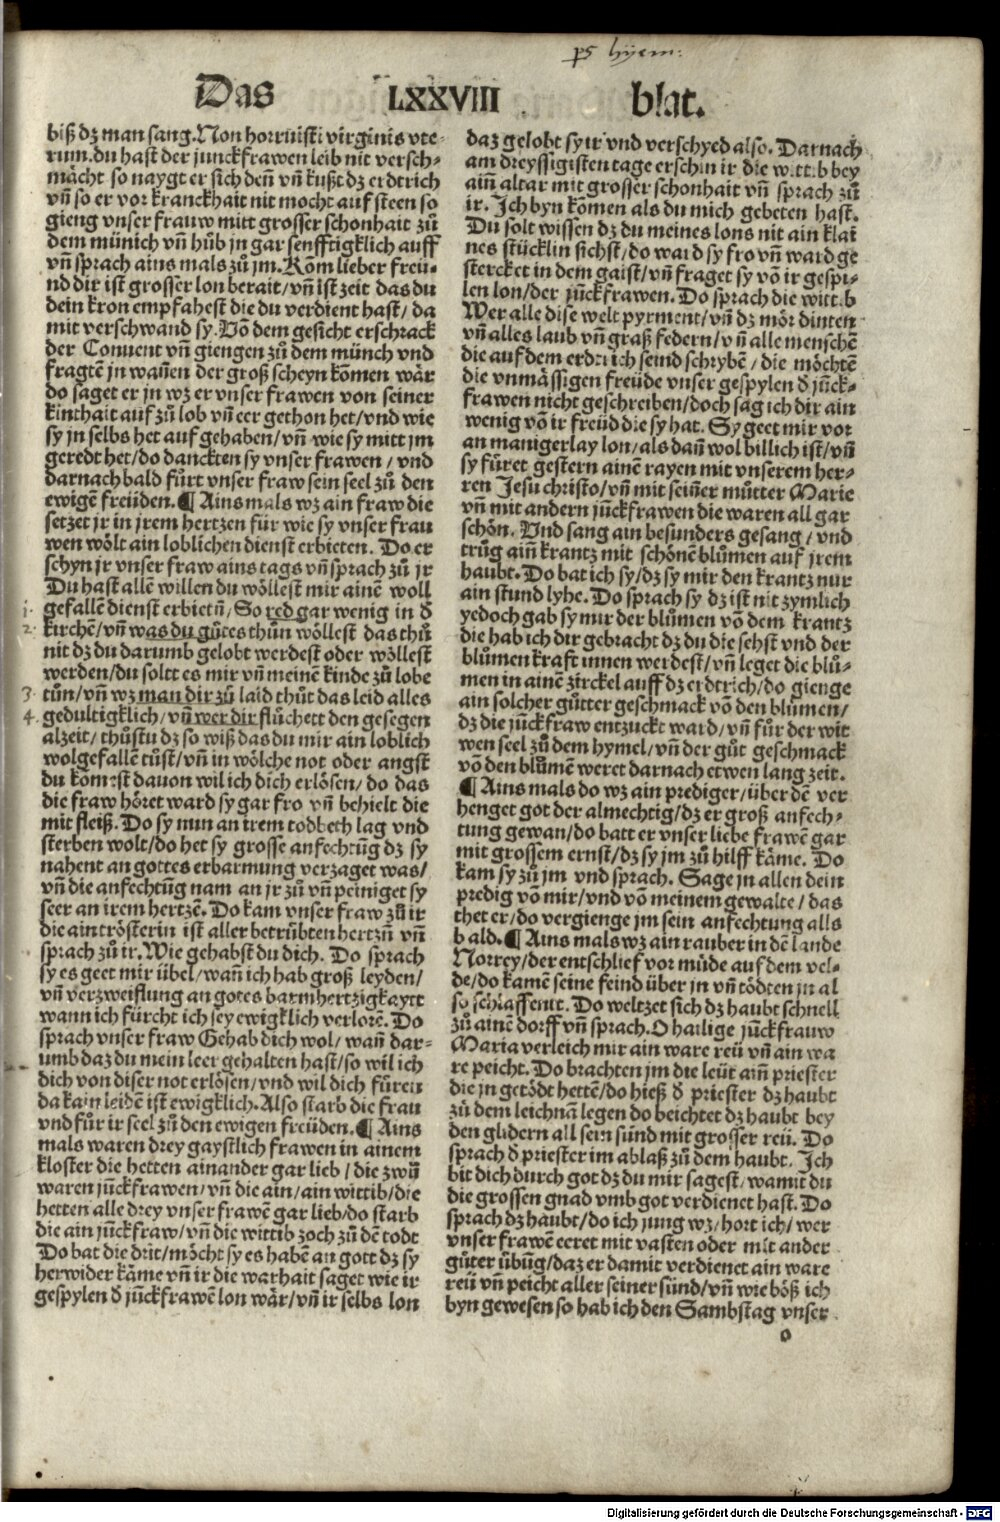 ps hyem:
Das LXXVIII blat.
biß dz man sang. Non horruisti virginis vte-
rum. du hast der junckfrawen leib nit versch-
mächt so naygt er sich deñ vñ kußt dz erdtrich
vñ so er vor kranckhait nit mocht auf steen so
gieng vnser frauw mitt grosser schonhait zů
dem münich vñ hůb jn gar senfftigklich auff
vñ sprach ains mals zů jm. Kom̃ lieber freü-
nd dir ist grosser lon berait/vñ ist zeit das du
dein kron empfahest die du verdient hast/ da
mit verschwand sy. Võ dem gesicht erschrack
der Conuent vñ giengen zů dem münch vnd
fragtẽ jn wañen der groß scheyn kõmen wär
do saget er jn wz er vnser frawen von seiner
kinthait auf zů lob vñ eer gethon het/vnd wie
sy jn selbs het auf gehaben/vñ wie sy mitt jm
geredt het/do danckten sy vnser frawen / vnd
darnach bald fůrt vnser fraw sein seel zů den
ewigẽ freüden. ¶ Ains mals wz ain fraw die
setzet jr in jrem hertzen für wie sy vnser frau
wen wölt ain loblichen dienst erbieten. Do er
schyn jr vnser fraw ains tags vñ sprach zů jr
Du hast allẽ willen du wöllest mir ainẽ woll
1. gefallẽ dienst erbietñ/ So red gar wenig in d̄
2. kirchẽ/vñ was du gůtes thůn wöllest das thů
nit dz du darumb gelobt werdest oder wöllest
werden/du soltt es mir vñ meinẽ kinde zů lobe
3. tůn/vñ wz man dir zů laid thůt das leid alles
4. gedultigklich/vñ wer dir flůchett den gesegen
alzeit/ thůstu dz so wiß das du mir ain loblich
wolgefallẽ tůst/vñ in wölche not oder angst
du kom̃st dauon wil ich dich erlösen/ do das
die fraw höret ward sy gar fro vñ behielt die
mit fleiß. Do sy nun an irem todbeth lag vnd
sterben wolt/do het sy grosse anfechtũg dz sy
nahent an gottes erbarmung verzaget was/
vñ die anfechtũg nam an jr zů vñ peiniget sy
seer an irem hertzẽ. Do kam vnser fraw zů ir
die ain trösterin ist aller betrübten hertzñ vñ
sprach zů ir. Wie gehabst du dich. Do sprach
sy es geet mir übel/wañ ich hab groß leyden/
vñ verzweiflung an gotes barmhertzigkaytt
wann ich fürcht ich sey ewigklich verlorẽ. Do
sprach vnser fraw Gehab dich wol/ wañ dar-
umb daz du mein leer gehalten hast/so wil ich
dich von diser not erlösen/vnd wil dich füren
da kain leidẽ ist ewigklich. Also starb die frau
vnd fůr ir seel zů den ewigen freüden. ¶ Ains
mals waren drey gaystlich frawen in ainem
kloster die hetten ainander gar lieb / die zwů
waren jũckfrawen/vñ die ain/ain wittib/die
hetten alle drey vnser frawẽ gar lieb/do starb
die ain jũckfraw/vñ die wittib zoch zů dẽ todt
Do bat die drit/möcht sy es habẽ an gott dz sy
herwider käme vñ ir die warhait saget wie ir
gespylen d̄ jũckfrawẽ lon wär/vñ ir selbs lon
daz gelobt sy ir vnd verschyed also. Darnach
am dreyssigisten tage erschin ir die wittib bey
aiñ altar mit grosser schonhait vñ sprach zů
ir. Ich byn kõmen als du mich gebeten hast.
Du solt wissen dz du meines lons nit ain klai
nes stücklin sichst/do ward sy fro vñ ward ge
stercket in dem gaist/vñ fraget sy võ ir gespi-
len lon/der jũckfrawen. Do sprach die wittib
Wer alle dise welt pyrment/vñ dz mör dinten
vñ alles laub vñ graß federn/vñ alle menschẽ
die auf dem erdtrich seind schrybẽ / die möchtẽ
die vnmässigen freüde vnser gespylen d̄ jũck-
frawen nicht geschreiben/doch sag ich dir ain
wenig võ ir freüd die sy hat. Sy geet mir vor
an manigerlay lon/als dañ wol billich ist/vñ
sy füret gestern ainẽ rayen mit vnserem her-
ren Jesu christo/vñ mit seiner můtter Marie
vñ mit andern jũckfrawen die waren all gar
schön. Vnd sang ain besunders gesang / vnd
trůg aiñ krantz mit schönẽ blůmen auf jrem
haubt. Do bat ich sy/dz sy mir den krantz nur
ain stund lyhe. Do sprach sy dz ist nit zymlich
yedoch gab sy mir der blůmen võ dem krantz
die hab ich dir gebracht dz du die sehst vnd der
blůmen kraft innen werdest/vñ leget die blů-
men in ainẽ zirckel auff dz erdtrich/do gienge
ain solcher gůtter geschmack võ den blůmen/
dz die jũckfraw entzuckt ward/vñ fůr der wit
wen seel zů dem hymel/vñ der gůt geschmack
võ den blůmẽ weret darnach etwen lang zeit.
¶ Ains mals do wz ain prediger/über dẽ ver
henget got der almechtig/dz er groß anfech-
tung gewan/do batt er vnser liebe frawẽ gar
mit grossem ernst/dz sy jm zů hilff käme. Do
kam sy zů jm vnd sprach. Sage jn allen dein
predig võ mir/vnd võ meinem gewalte / das
thet er/do vergienge jm sein anfechtung alls
bald. ¶ Ains mals wz ain rauber in dẽ lande
Norrey/der entschlief vor müde auf dem vel-
de/do kamẽ seine feind über jn vñ tödten jn al
so schlaffent. Do weltzet sich dz haubt schnell
zů ainẽ dorff vñ sprach. O hailige jũckfrauw
Maria verleich mir ain ware reü vñ ain wa
re peicht. Do brachten jm die leüt aiñ priester
die jn getödt hettẽ/do hieß d̄ priester dz haubt
zů dem leichnã legen do beichtet dz haubt bey
den glidern all sein sünd mit grosser reü. Do
sprach d̄ priester im ablaß zů dem haubt. Ich
bit dich durch got dz du mir sagest/wamit du
die grossen gnad vmb got verdienet hast. Do
sprach dz haubt/do ich jung wz/hort ich/wer
vnser frawẽ eeret mit vasten oder mit ander
gůter übũg/daz er damit verdienet ain ware
reü vñ peicht aller seiner sünd/vñ wie böß ich
byn gewesen so hab ich den Sambstag vnser
o
Digitalisierung gefördert durch die Deutsche Forschungsgemeinschaft - DFG